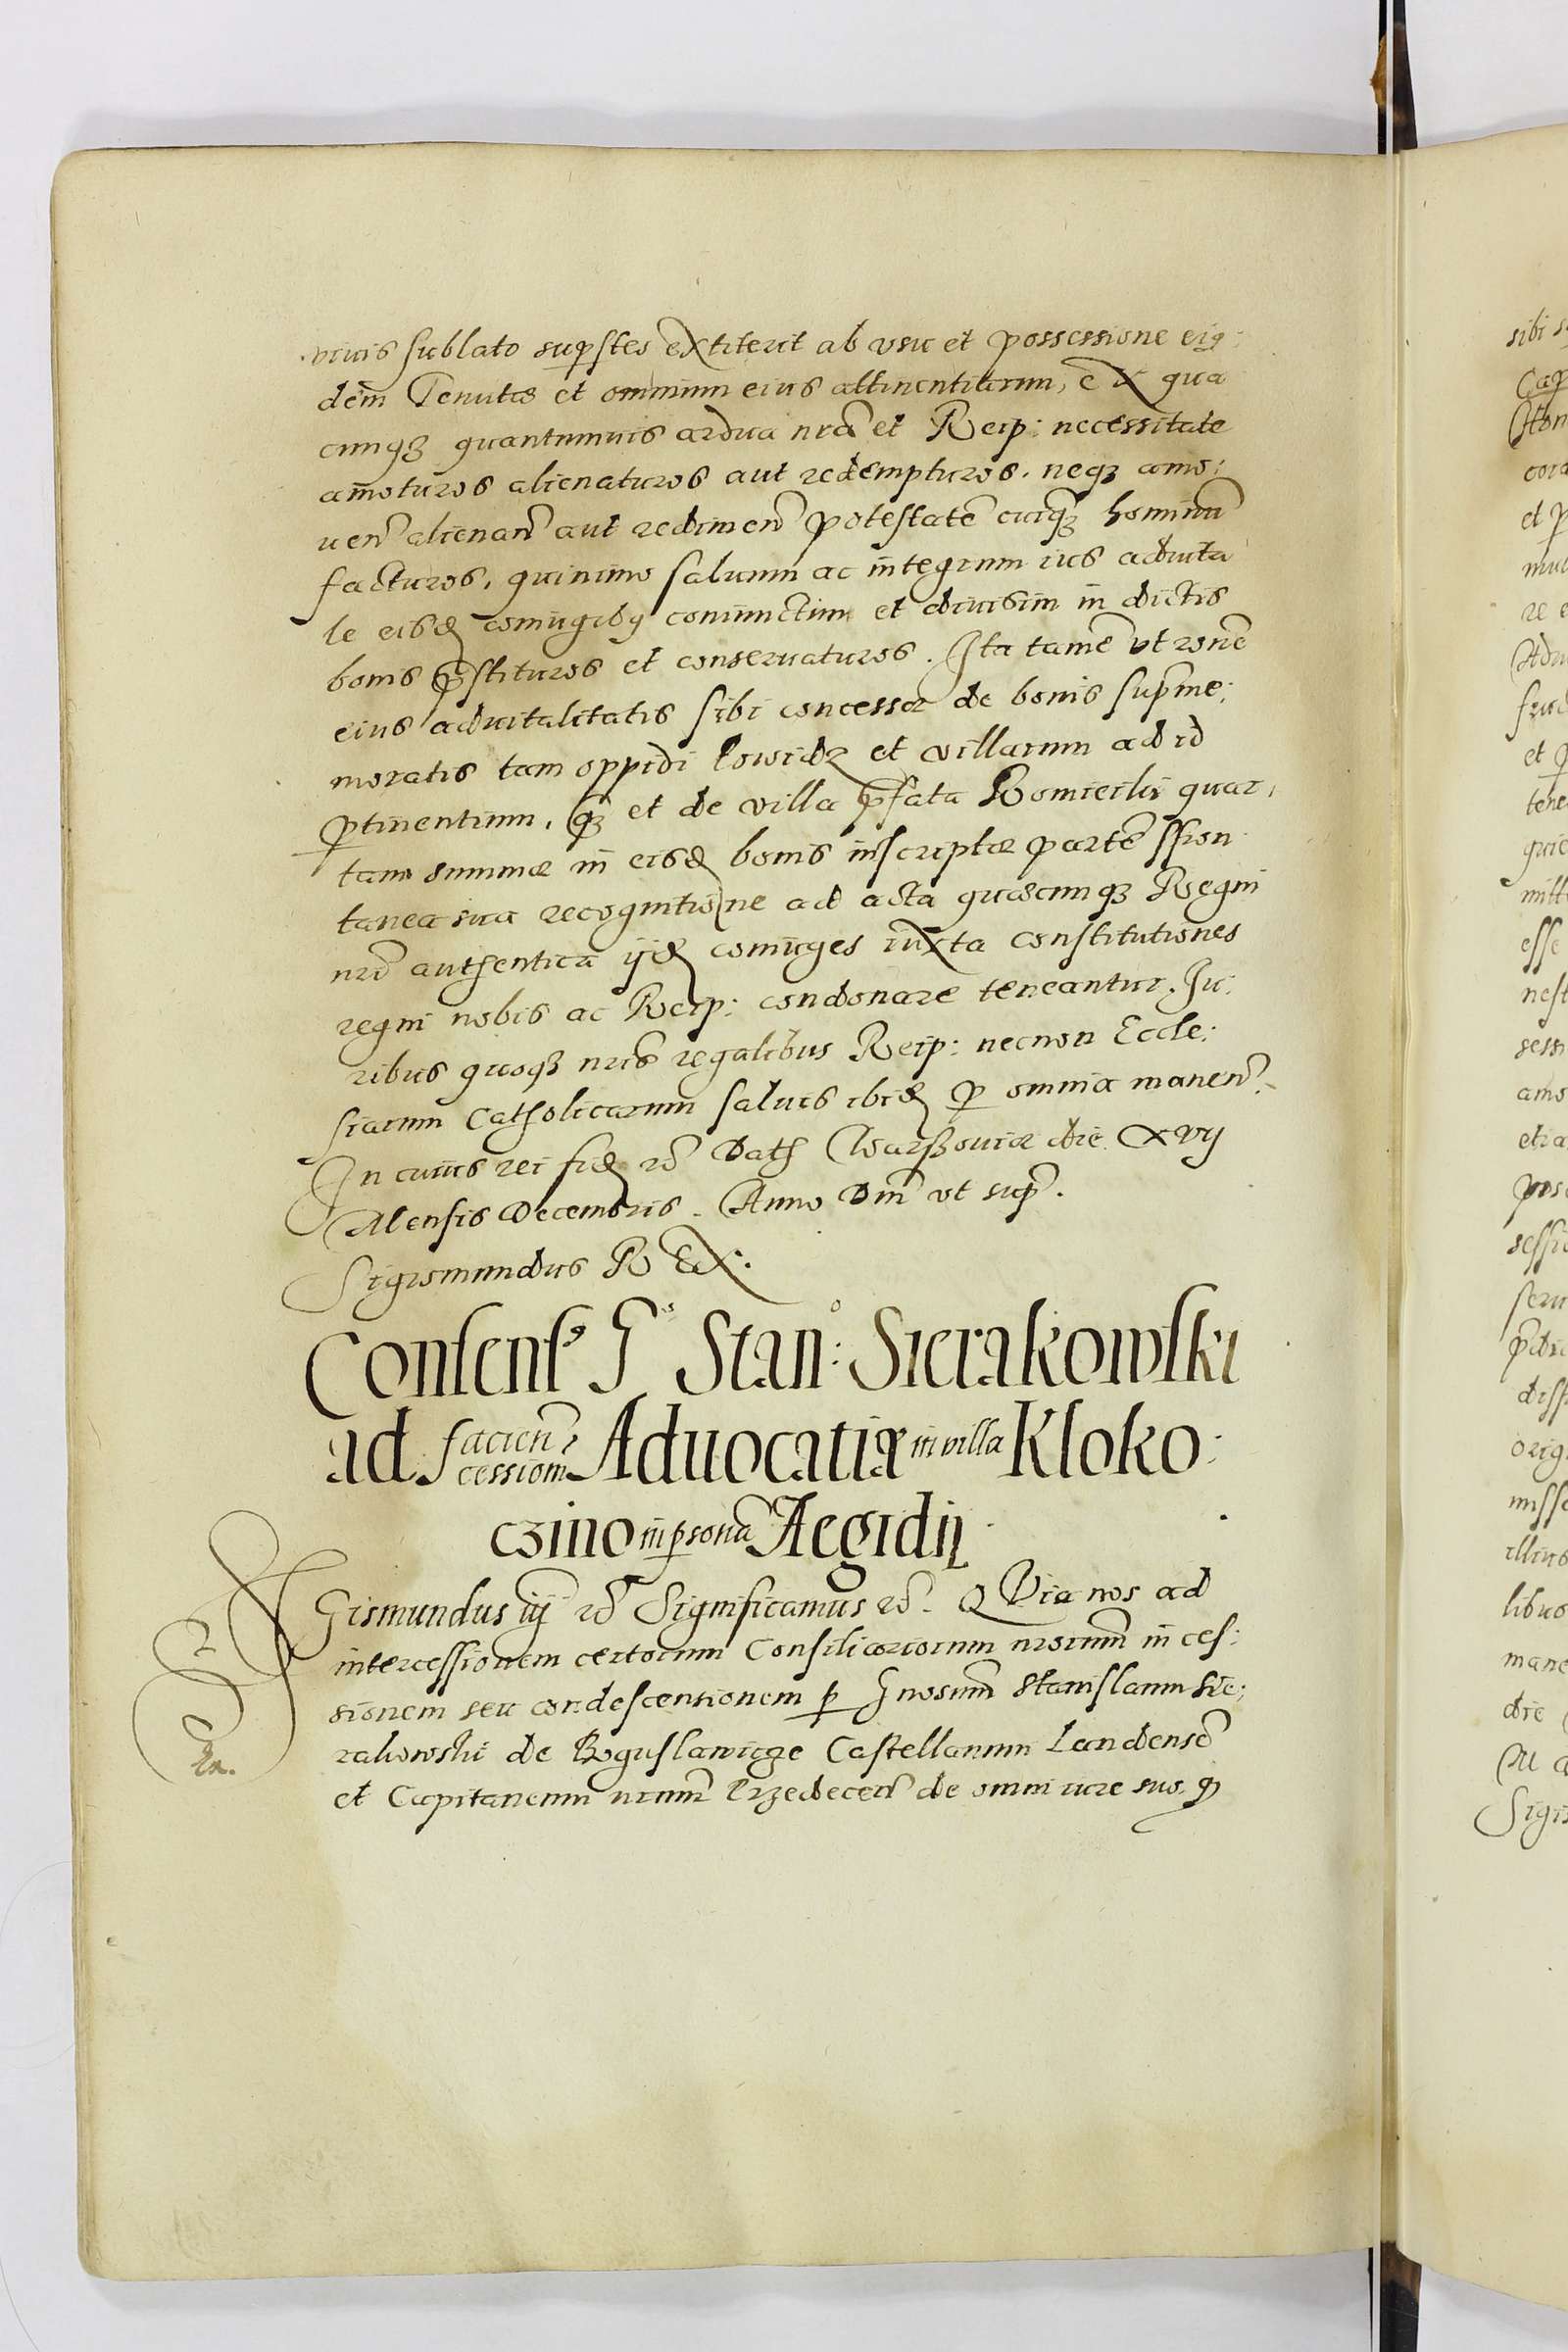 viuis sublato supstes extiterit ab vsu et possessione eiq:
dem Tenutæ et omnium eius attinentiarum, ex qua
cunqȝ quantumuis ardua nrã et Reip: necessitate
amoturos alienaturos aut redempturos. neqȝ amo:
uen alienan aut redimen potestatẽ cuiqȝ hominũ
facturos, quinimo saluum ac integrum ius aduita
le eisd coniugibq coniunctim et diuisim in dictis
bonis pstituros et conseruaturos. Ita tamẽ vt ronẽ
eius aduitalitatis sibi concessæ de bonis supme:
moratis tam oppidi Lowidz et villarum ad id
ptinentium, qȝ et de villa pfata Romieiki quar,
tam summæ in eisd bonis inscriptæ partẽ spon
tanea sua recognitione ad acta quæcunqȝ Regni
nri authentica ijd coniuges iuxta constitutiones
regni nobis ac Reip: condonare teneantur. Iu:
ribus quoqȝ nris regalibus Reip: necnon Eccle:
siarum Catholicarum saluis ibid p omnia manen.
In cuius rei fid rc Dath Warschouiæ die XVIJ
Mensis Decembris. Anno Dni vt sup.
Sigismundus REX.
Consens Gs Stan: Sierakowski
ad facien cessiom Aduocatiæ in villa Kloko:
czino in psona Aegidij
Sigismundus iij rc Significamus rc. QVia nos ad
intercessionem certorum Consiliariorum nrorum in ces:
sionem seu condescensionem p Gnosum Stanislaum Sie:
rakowski de Boguslawicze Castellanum Landensẽ
et Capitaneum nrum Przedecen de omni iure suo qȝ